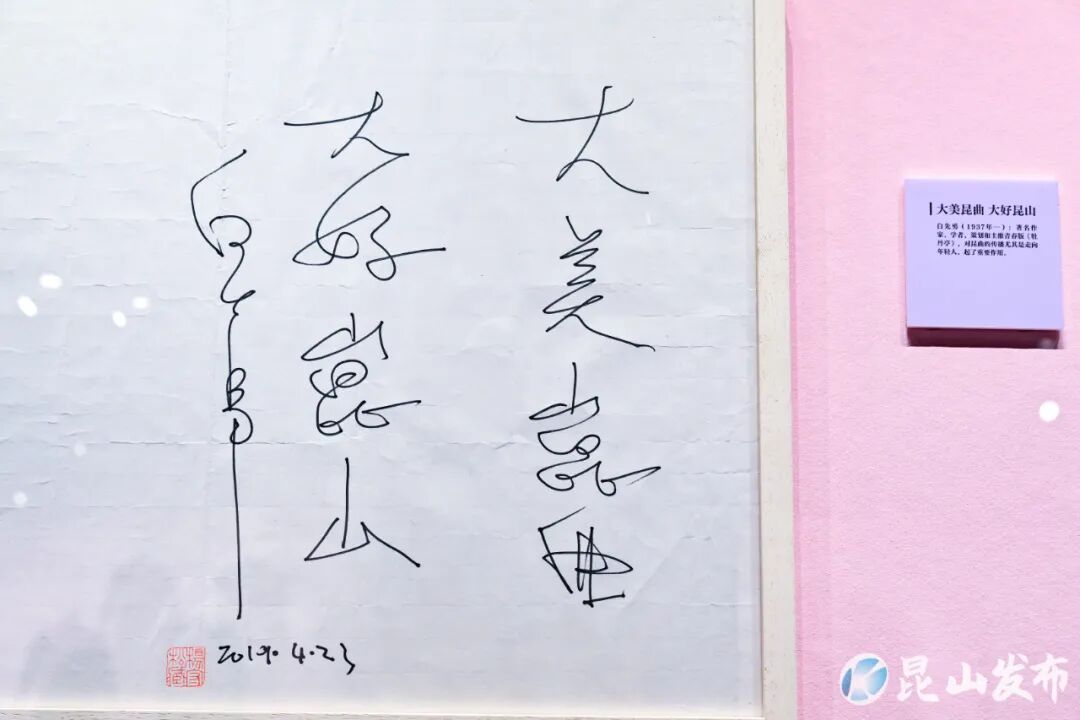 大美崑曲
大好崑山
白先勇
2019.4.23
大美昆曲 大好昆山
白先勇（1937年—）：著名作
家、学者，策划和主推青春版《牡
丹亭》，对昆曲的传播尤其是走向
年轻人，起了重要作用。
昆山发布